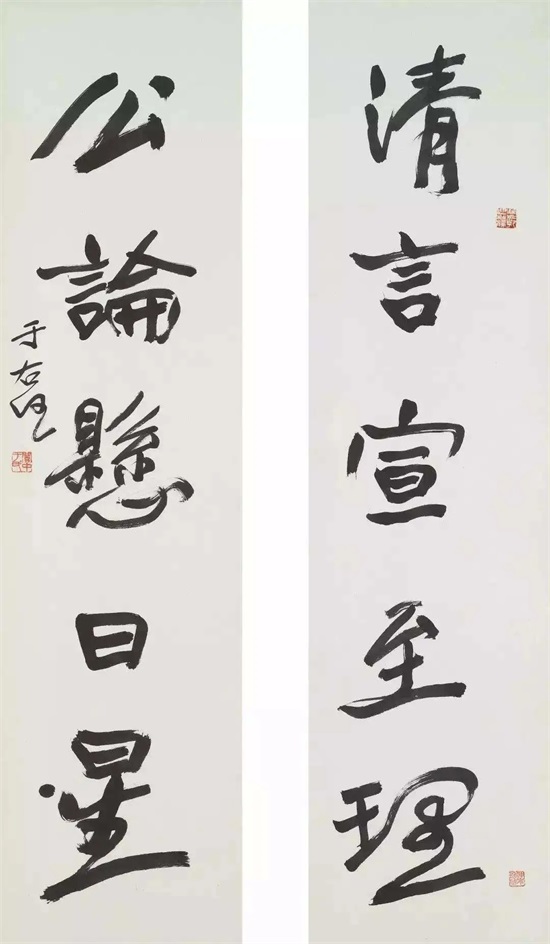 清言宣至理
公論懸日星
于右任